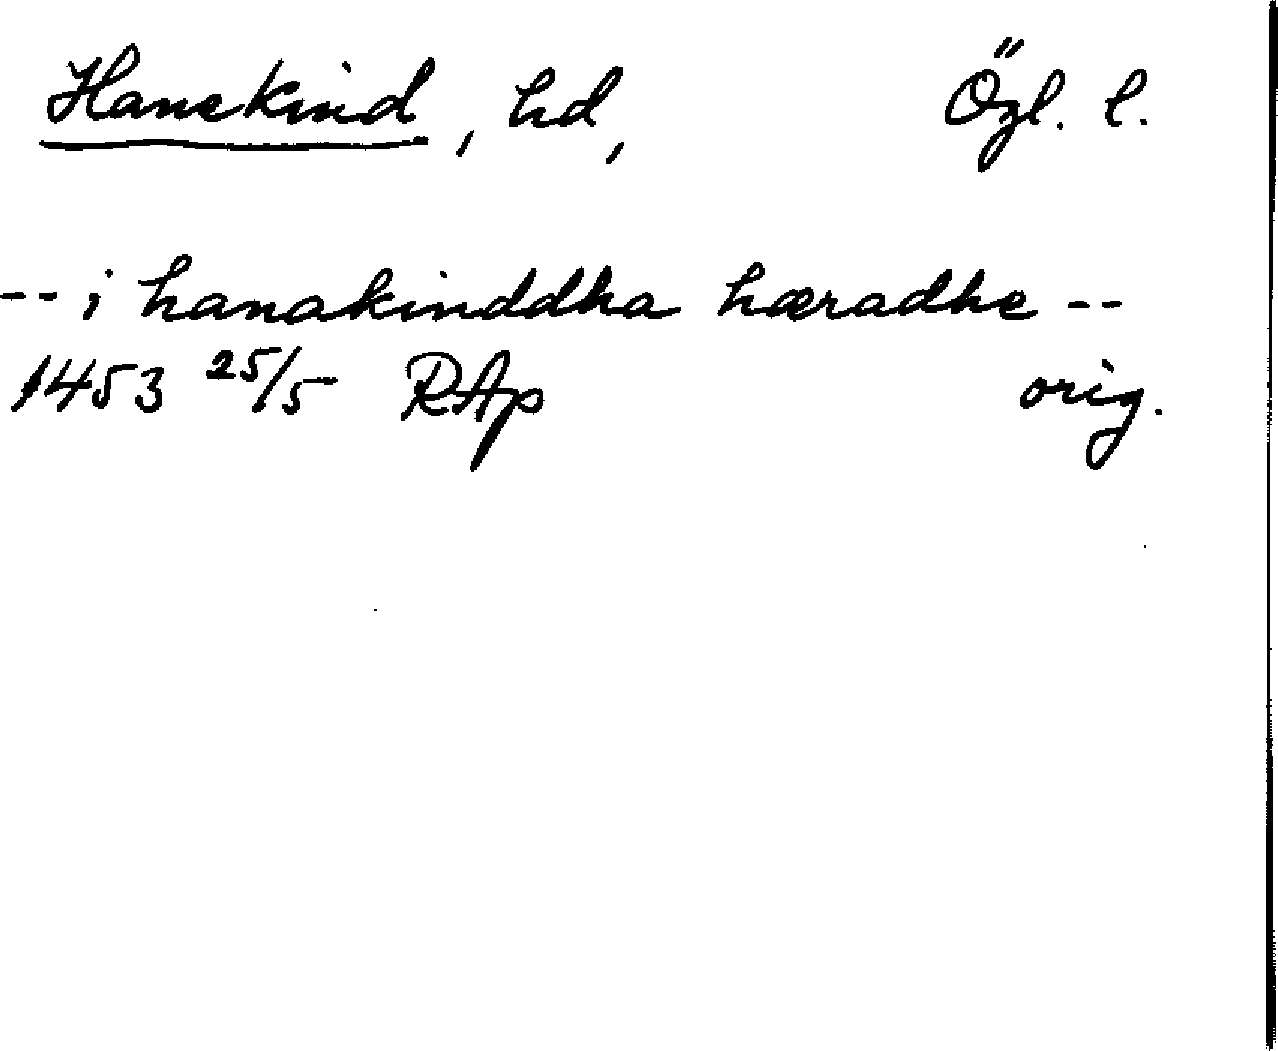 Hanekind, hd, Ögl. l.
-- i hanakinddha hæradhe --
1453 25/5 RAp orig.